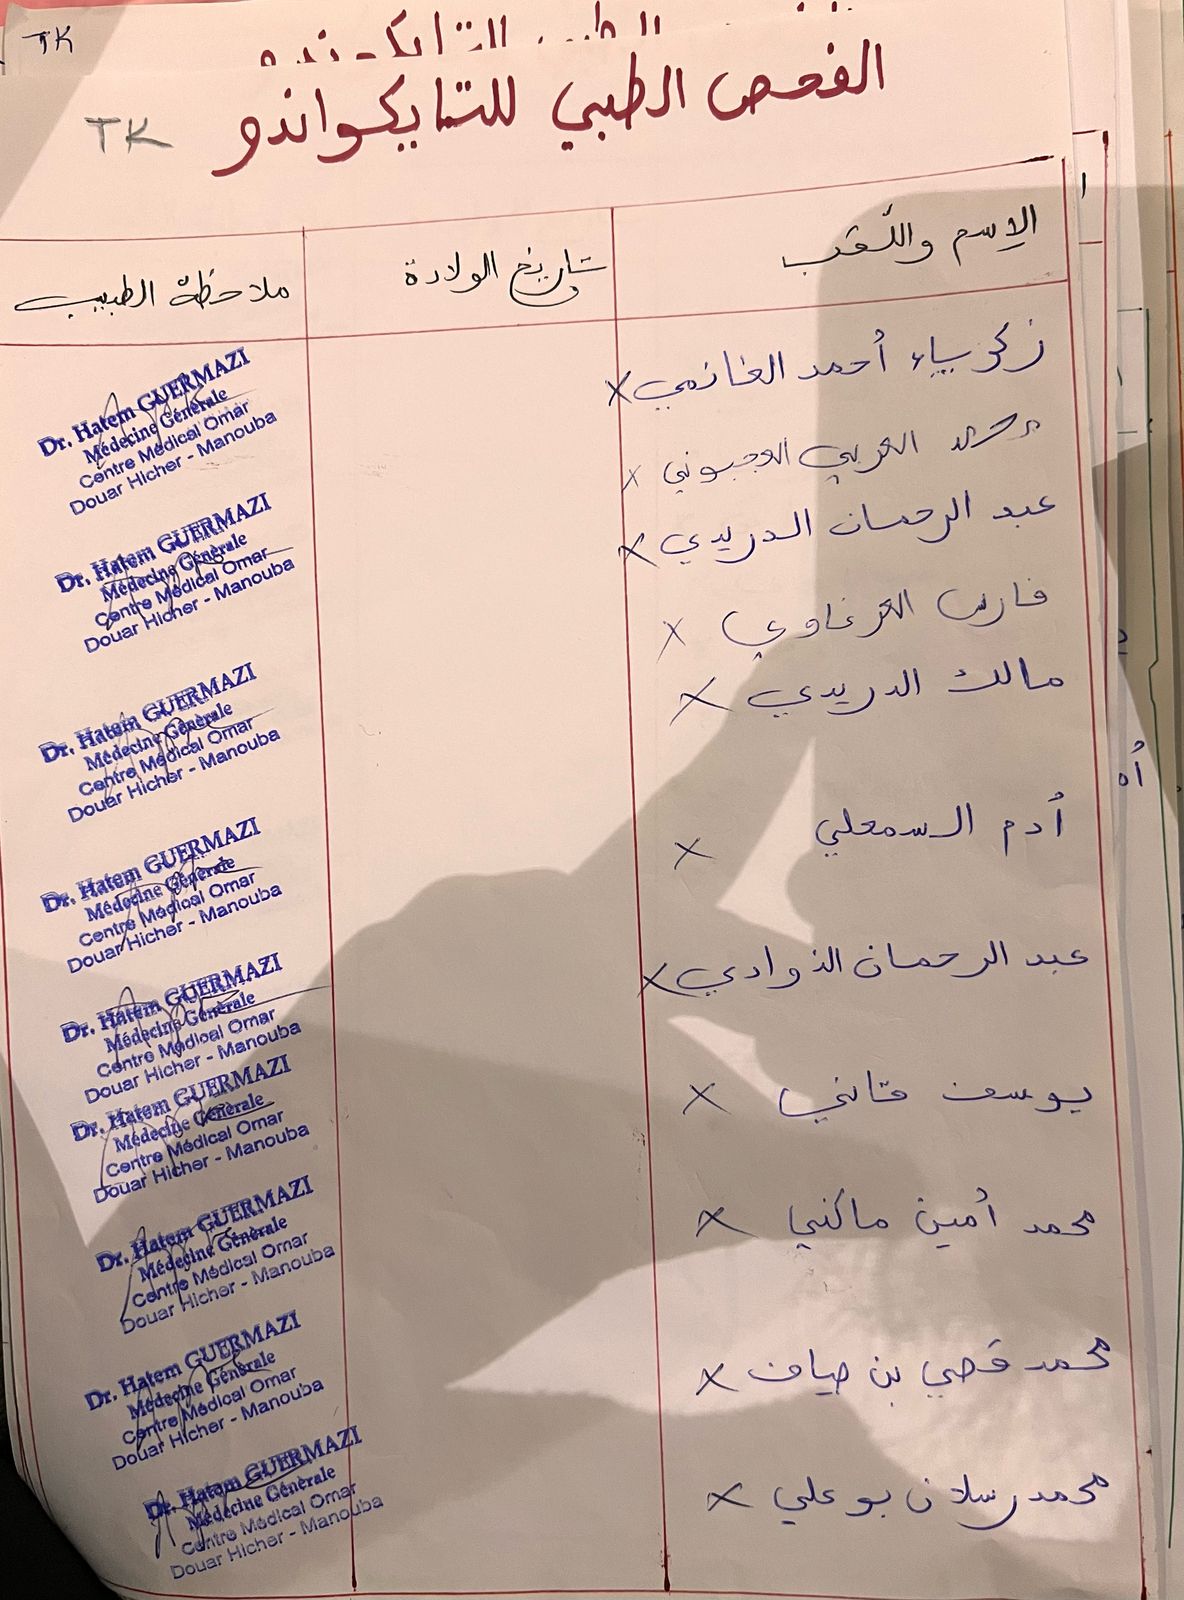 TK
الفحص الطبي للتايكواندو
TK
الإسم واللّقب
تاريخ الولادة
ملاحظة الطبيب
زكرياء أحمد الغانمي X
Dr. Hatem GUERMAZI
Médecine Générale
Centre Médical Omar
Douar Hicher - Manouba
العربي X
عبد الرحمان الدريدي X
Dr. Hatem GUERMAZI
Médecine Générale
Centre Médical Omar
Douar Hicher - Manouba
فارس X
مالك الدريدي X
Dr. Hatem GUERMAZI
Médecine Générale
Centre Médical Omar
Douar Hicher - Manouba
أدم السمعلي X
Dr. Hatem GUERMAZI
Médecine Générale
Centre Médical Omar
Douar Hicher - Manouba
عبد الرحمان الذوادي X
Dr. Hatem GUERMAZI
Médecine Générale
Centre Médical Omar
Douar Hicher - Manouba
يوسف قانني X
Dr. Hatem GUERMAZI
Médecine Générale
Centre Médical Omar
Douar Hicher - Manouba
محمد أمين ماكني X
Dr. Hatem GUERMAZI
Médecine Générale
Centre Médical Omar
Douar Hicher - Manouba
محمد قصي بن ضياف X
Dr. Hatem GUERMAZI
Médecine Générale
Centre Médical Omar
Douar Hicher - Manouba
محمد رسلان بوعلي X
Dr. Hatem GUERMAZI
Médecine Générale
Centre Médical Omar
Douar Hicher - Manouba